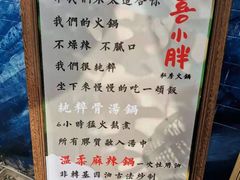 喜小胖
私房火鍋
我們的火鍋
不燥辣 不膩口
我們很純粹
坐下來慢慢的吃一頓飯
純粹骨湯鍋
6小時猛火熬煮
所有膠質融入湯中
溫柔麻辣鍋 一次性用油
非轉基因油古法炒制